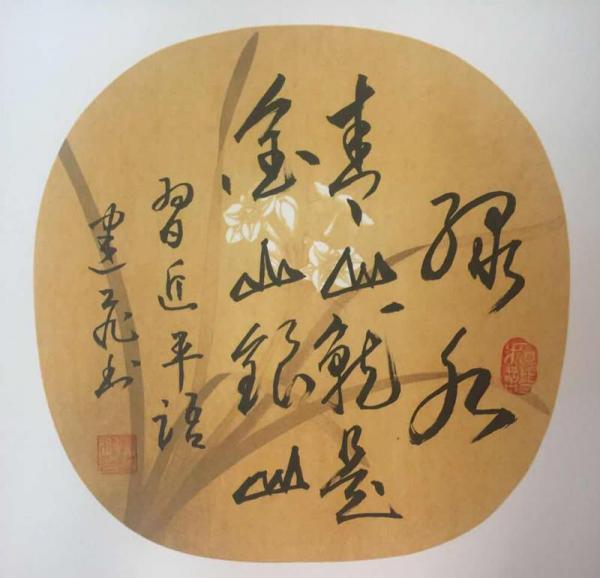 绿水
青山就是
金山銀山
習近平語
建 书